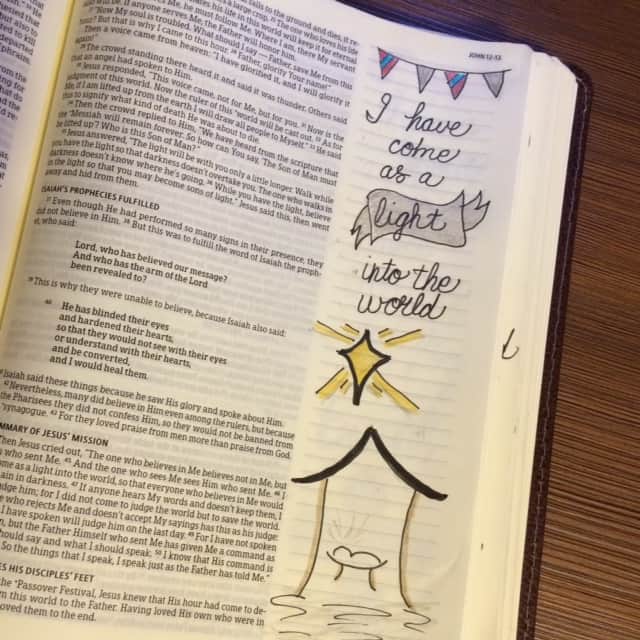 JOHN 12-13
I have
come
as a
light
into the
world
Now My soul is troubled. What should I say — Father, save Me from this
hour? But that is why I came to this hour. Father, glorify Your name!"
Then a voice came from heaven: "I have glorified it, and I will glorify it
The crowd standing there heard it and said it was thunder. Others said
that an angel had spoken to Him.
Jesus responded, "This voice came, not for Me, but for you. Now is the
judgment of this world. Now the ruler of this world will be cast out. As for
Me, if I am lifted up from the earth I will draw all people to Myself." He said
this to signify what kind of death He was about to die.
Then the crowd replied to Him, "We have heard from the scripture that
the Messiah will remain forever. So how can You say, 'The Son of Man must
be lifted up'? Who is this Son of Man?"
Jesus answered, "The light will be with you only a little longer. Walk while
you have the light so that darkness doesn't overtake you. The one who walks in
darkness doesn't know where he's going. While you have the light, believe
in the light so that you may become sons of light." Jesus said this, then went
away and hid from them.
ISAIAH'S PROPHECIES FULFILLED
Even though He had performed so many signs in their presence, they
did not believe in Him. 38 But this was to fulfill the word of Isaiah the proph-
et, who said:
Lord, who has believed our message?
And who has the arm of the Lord
been revealed to?
39 This is why they were unable to believe, because Isaiah also said:
40 He has blinded their eyes
and hardened their hearts,
so that they would not see with their eyes
or understand with their hearts,
and be converted,
and I would heal them.
Isaiah said these things because he saw His glory and spoke about Him.
42 Nevertheless, many did believe in Him even among the rulers, but because
the Pharisees they did not confess Him, so they would not be banned from
synagogue. 43 For they loved praise from men more than praise from God.
MMARY OF JESUS' MISSION
Then Jesus cried out, "The one who believes in Me believes not in Me, but
who sent Me. 45 And the one who sees Me sees Him who sent Me. 46 I
me as a light into the world, so that everyone who believes in Me would
ain in darkness. 47 If anyone hears My words and doesn't keep them, I
udge him; for I did not come to judge the world but to save the world.
e who rejects Me and doesn't accept My sayings has this as his judge:
I have spoken will judge him on the last day. 49 For I have not spoken
n, but the Father Himself who sent Me has given Me a command as
hould say and what I should speak. 50 I know that His command is
So the things that I speak, I speak just as the Father has told Me."
ES HIS DISCIPLES' FEET
the Passover Festival, Jesus knew that His hour had come to de-
m this world to the Father. Having loved His own who were in
oved them to the end.